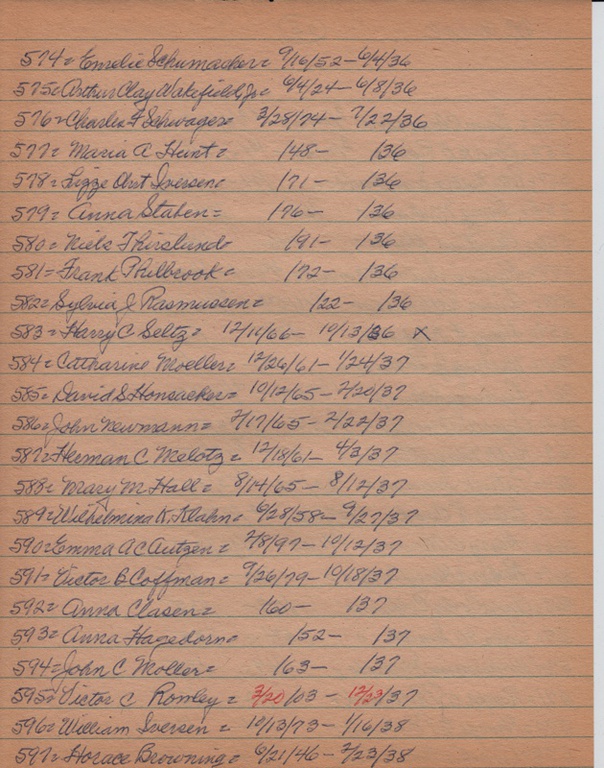 574= Emelie Schumacker= 9/16/52-6/4/36
575= Arthur Clay Wakefield, Jr= 6/4/24-6/8/36
576= Charles F Schwager= 3/28/74-7/22/36
577= Maria A Hunt= /48- /36
578= Lizze Obst Iversen= /71- /36
579= Anna Staben= /76- /36
580= Niels Thirslund= /91- /36
581= Frank Philbrook= /72- /36
582= Sylvia J Rasmussen= /22- /36
583= Harry C Seltz= 12/11/66- 10/13/36 X
584= Catharine Moeller= 12/26/61- 1/24/37
585= David S Honsacker= 10/12/65- 2/20/37
586= John Newmann= 7/17/65- 2/22/37
587= Herman C Melotz= 12/18/61- 4/3/37
588= Mary M. Hall= 8/14/65- 8/12/37
589= Wilhelmina K. Klahn= 6/28/58- 9/27/37
590= Emma A C Autzen= 2/8/97- 10/12/37
591= Victor B Coffman= 9/26/79- 10/18/37
592= Anna Clasen= /60- /37
593= Anna Hagedorn= /52- /37
594= John C Moller= /63- /37
595= Victor C Romley= 3/20/03 - 12/23/37
596= William Iversen= 10/13/73- 1/16/38
597= Horace Browning= 6/21/46- 7/23/38